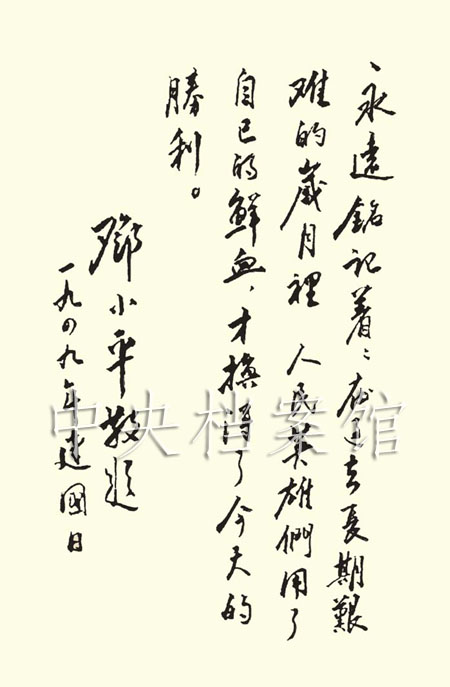 、永遠銘記着：在過去長期艱
难的歲月裡 人民英雄們用了
自己的鮮血，才換得了今天的
勝利。
鄧小平敬題
一九四九年建國日
中央档案馆